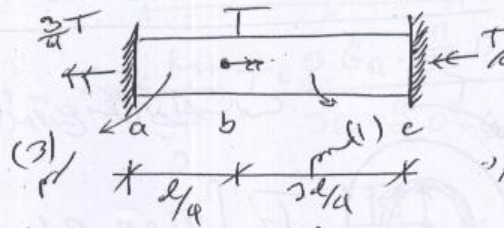 3/4 T T T/
a b c
(3) (1)
l/4 3l/4